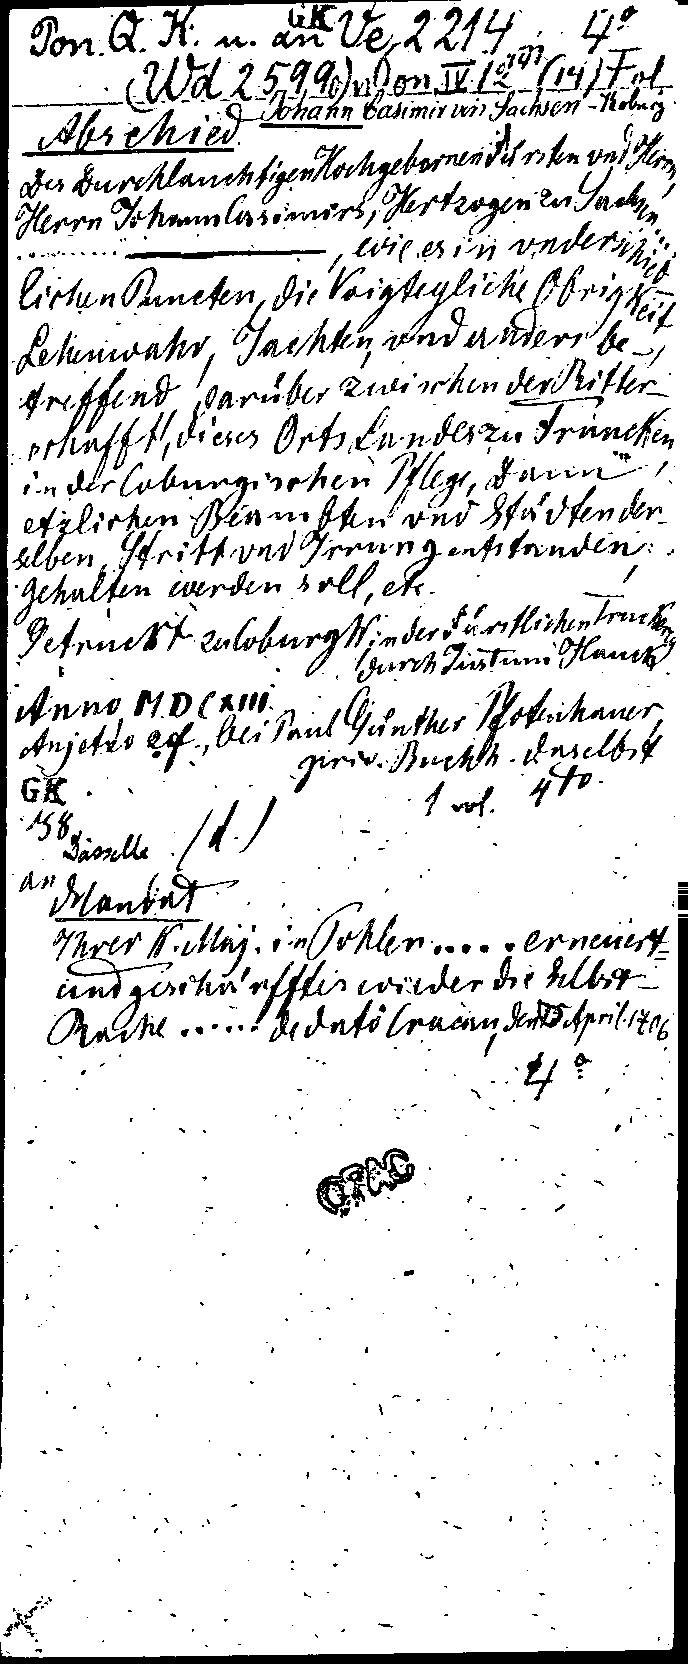 Pon. Q. K. u. an GK Ve 2214 4°
(Wd 2599°) u. Pon IV (14) Fol.
Johann Casimir von Sachsen-Koburg
Abschied
Des Durchlauchtigen Hochgebornen Fürsten vnd Herrn,
Herrn Johann Casimirs, Hertzogen zu Sachsen
..........————, wie es in vnderschied-
lichen Puncten, die Voigteyliche Obrigkeit
Lehenwahr, Jachten, vnd anders be-
treffend, darüber zwischen der Ritter-
schafft, dieses Orts Landes zu Francken
in der Coburgischen Pflege, Dann,
etzlichen Beambten vnd Städten der-
selben, Stritt vnd Irrung entstanden,
gehalten werden soll, etc.
Getruckt zu Coburgk, in der Fürstlichen Truckerey
durch Justum Hauck
Anno, MDCXIII.
Anjetzo aber, bei Paul Günther Pfotenhauer,
priv. Buchh. daselbst
GK 1 vol. 4to
158 Dasselbe (d.)
an Mandat
Ihrer K. Maj. in Pohlen ..... erneuert-
und geschärfftes wieder die Selbst-
Rache ...... de dato Cracau, den 15 April 1706
4°
OPAC